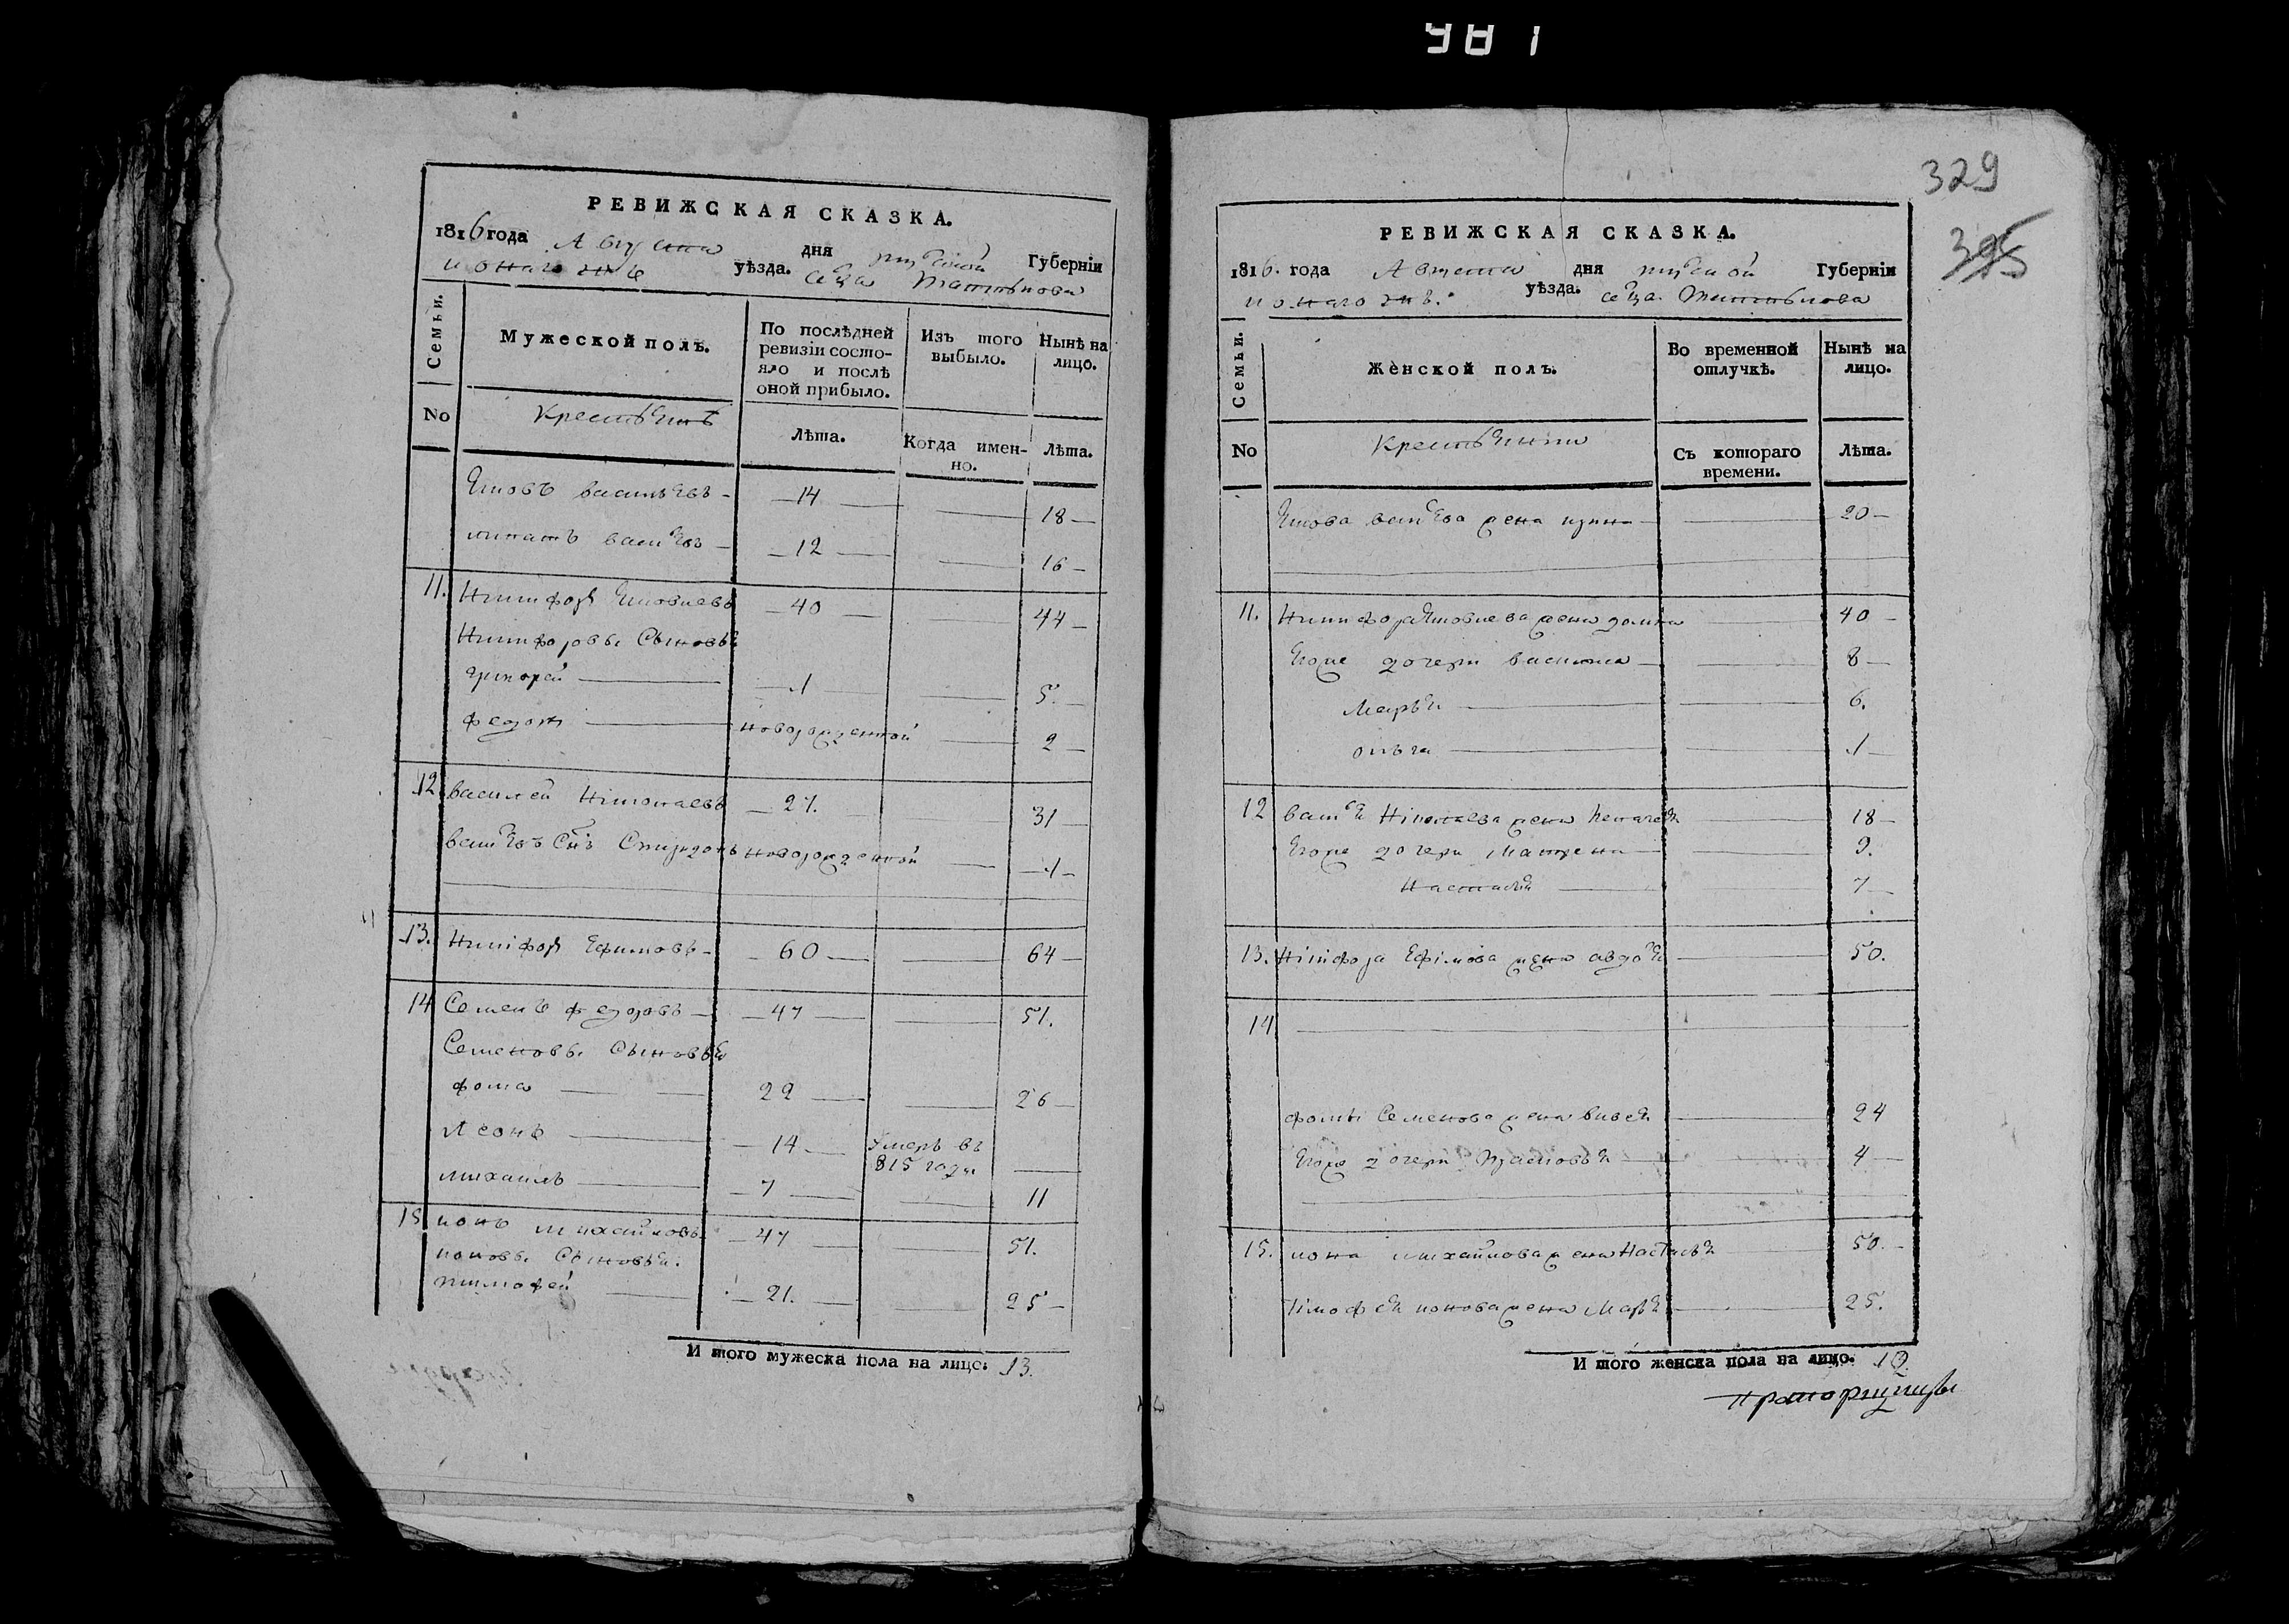 981
РЕВИЖСКАЯ СКАЗКА.
1816 года Августа дня Губерніи
уѣзда. селца
Семьи.
Мужеской полъ.
По послѣдней ревизіи состо-
яло и послѣ оной прибыло.
Изъ того выбыло.
Нынѣ на лицо.
No
Крестьянъ
Лѣта.
Когда имен-
но.
Лѣта.
Яковъ васильевъ 14 18
игнатъ васильевъ 12 16
11. Никифоръ Яковлевъ 40 44
Никифоровы Сыновья
григорей 1 5.
федотъ новорожденной 2
12 василей 27. 31
васильевъ Снъ Спиридонъ новорожденной 1
13. Никифоръ Ефимовъ 60 64
14 Семенъ федоровъ 47 51.
Семеновы Сыновья
фома 22 26
Леонъ 14 умеръ въ
815 году
михаилъ 7 11
15 ионъ михайловъ 47 51.
ионовы Сыновья.
тимофей 21. 25
И того мужеска пола на лицо. 13.
329
395
РЕВИЖСКАЯ СКАЗКА.
1816. года Августа дня Губерніи
уѣзда. селца.
Семьи.
Женской полъ.
Во временной отлучкѣ.
Нынѣ на лицо.
No
Съ котораго времени.
Лѣта.
Якова васильева жена 20
11. Никифора Яковлева жена домна 40
Егоже дочери василиса 8
Марья 6.
ольга 1
12 жена Пелагея 18
Егоже дочери Матрена 9.
Настасья 7
13. Никифора Ефимова жена авдотья 50.
14
фомы Семенова жена 24
Егоже дочери Прасковья 4
15. иона михайлова жена Настасья 50.
Тимофея ионова жена Марья 25.
И того женска пола на лицо.